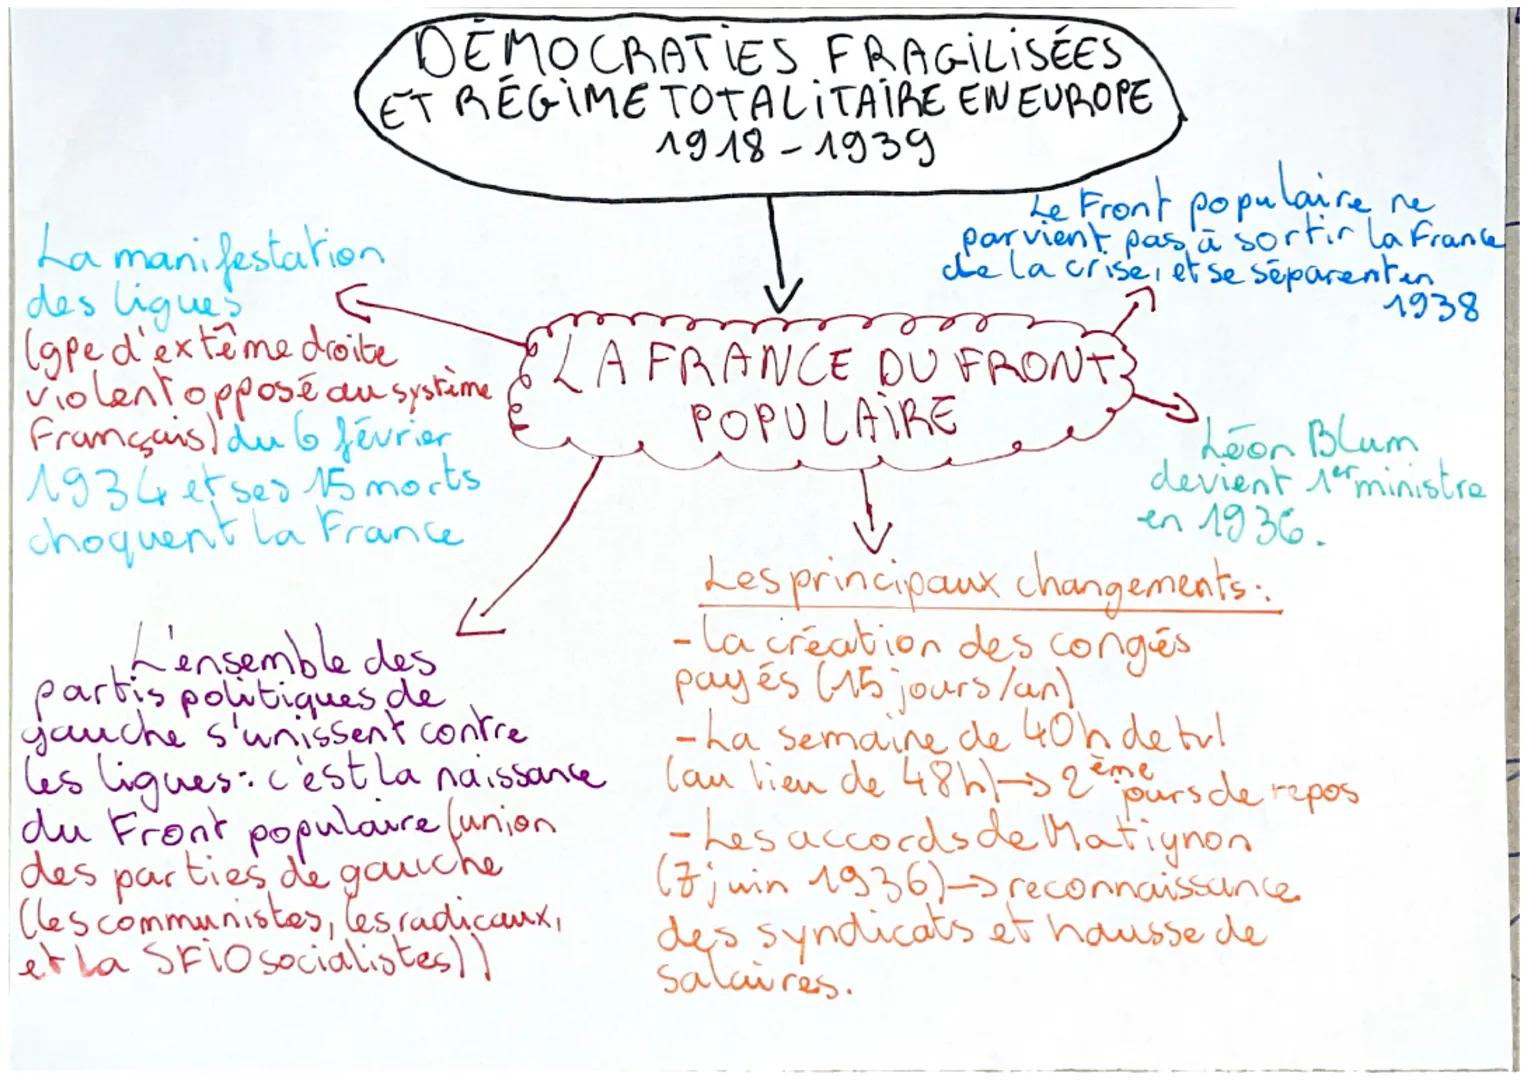 DÉMOCRATIES FRAGILISÉES
ET RÉGIME TOTALITAIRE EN EUROPE
1918 - 1939
La manifestation
des ligues
(gpe d'extême droite
violent opposé au système
Français) du 6 février
1934 et ses 15 morts
choquent la France
Le Front populaire ne
parvient pas à sortir la France
de la crise, et se séparent en
1938
LA FRANCE DU FRONT
POPULAIRE
Léon Blum
devient 1er ministre
en 1936.
L'ensemble des
partis politiques de
gauche s'unissent contre
les ligues : c'est la naissance
du Front populaire (union
des parties de gauche
(les communistes, les radicaux,
et la SFIO socialistes))
Les principaux changements :
- La création des congés
payés (15 jours/an)
- La semaine de 40h de tvl
(au lieu de 48h) → 2ème jours de repos
- Les accords de Matignon
(7 juin 1936) → reconnaissance
des syndicats et hausse de
salaires.